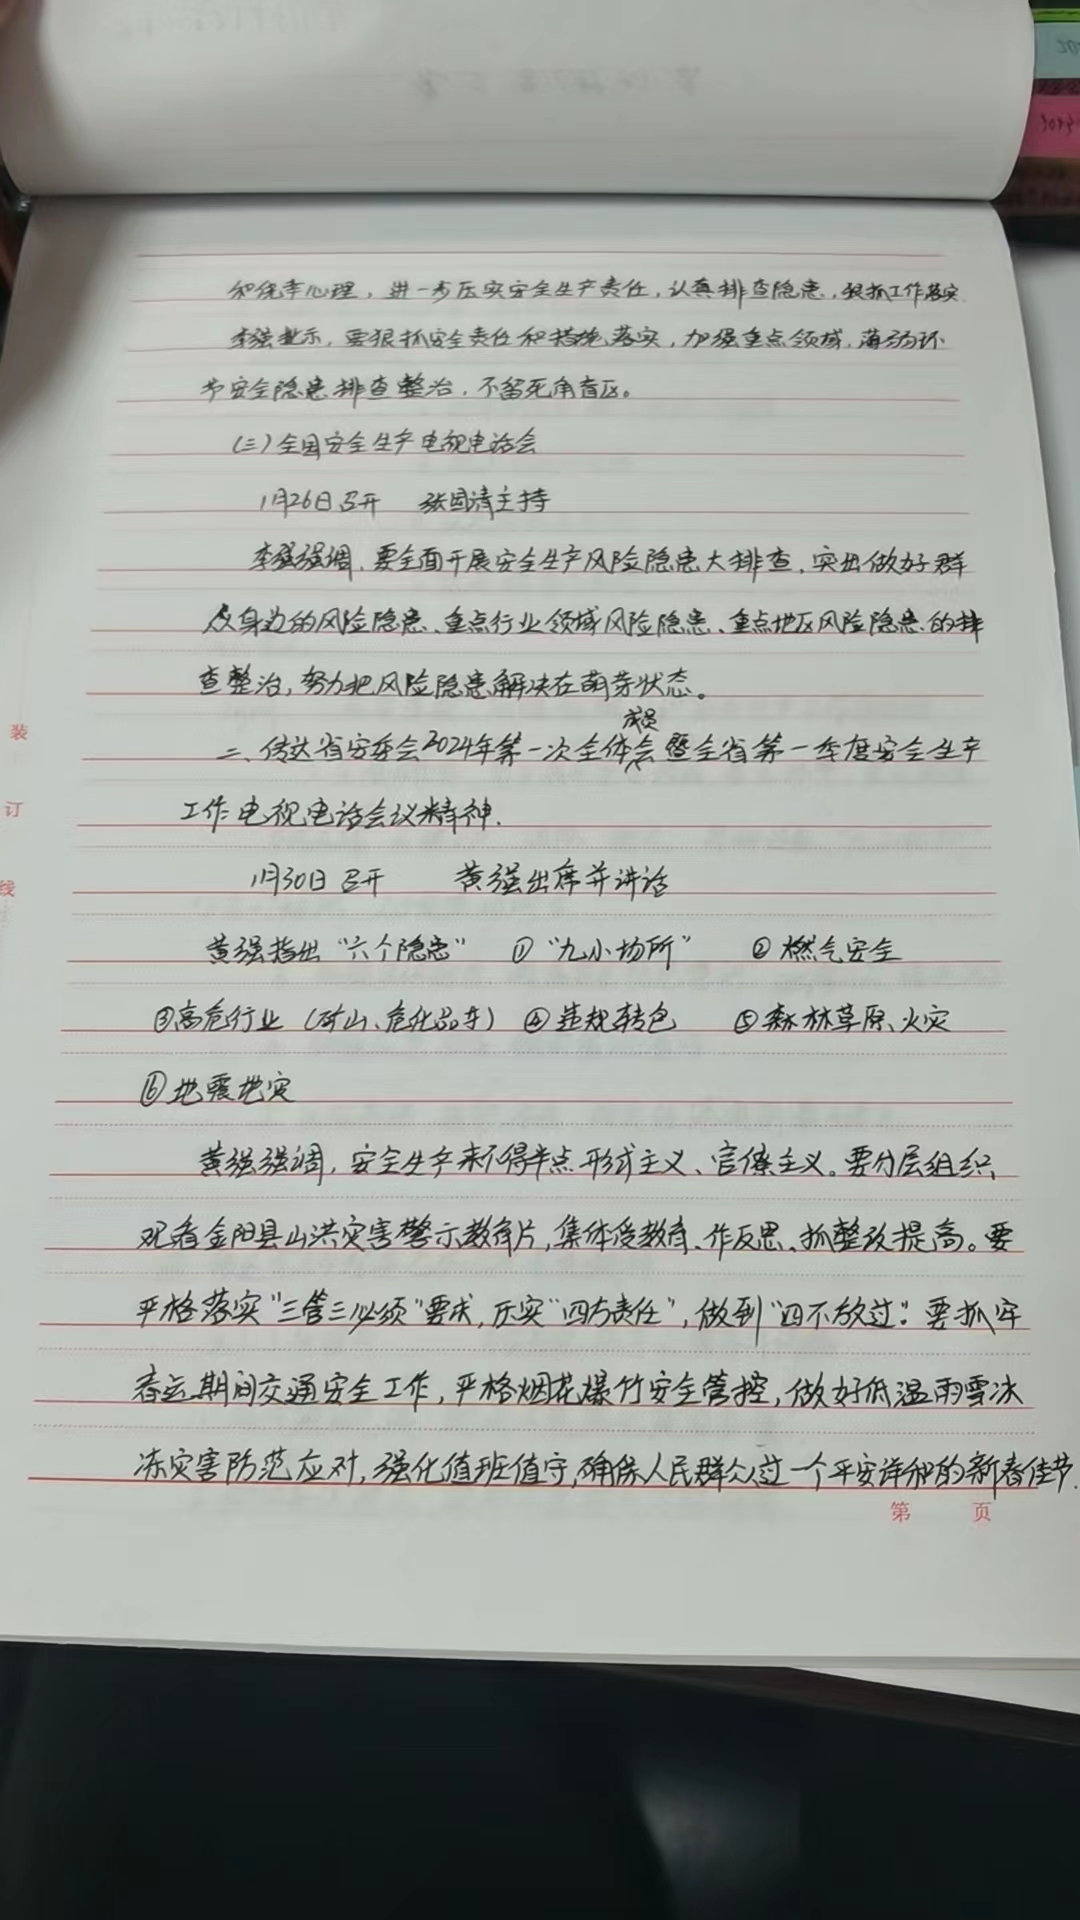 和侥幸心理，进一步压实安全生产责任，认真排查隐患，狠抓工作落实.
李强批示，要狠抓安全责任和措施落实，加强重点领域、薄弱环
节安全隐患排查整治，不留死角盲区。
(三)全国安全生产电视电话会
1月26日召开 张国清主持
李强强调，要全面开展安全生产风险隐患大排查，突出做好群
众身边的风险隐患、重点行业领域风险隐患、重点地区风险隐患的排
查整治，努力把风险隐患解决在萌芽状态。
二、传达省安委会2024年第一次全体成员会暨全省第一季度安全生产
工作电视电话会议精神.
1月30日召开 黄强出席并讲话
黄强指出“六个隐患” ①“九小场所” ②燃气安全
③高危行业（矿山、危化品车） ④违规转包 ⑤森林草原、火灾
⑥地震地灾
黄强强调，安全生产来不得半点形式主义、官僚主义。要分层组织
观看金阳县山洪灾害警示教育片，集体受教育、作反思、抓整改提高。要
严格落实“三管三必须”要求，压实“四方责任”，做到“四不放过”. 要抓牢
春运期间交通安全工作，严格烟花爆竹安全管控，做好低温雨雪冰
冻灾害防范应对，强化值班值守，确保人民群众过一个平安祥和的新春佳节.
装
订
线
第 页